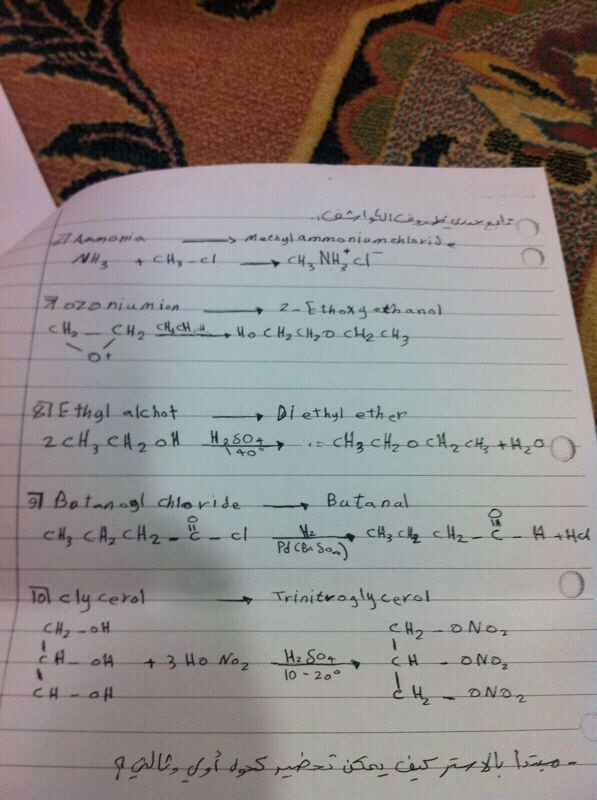 تابع صدى ظروف الكوارشف..
6] Ammonia → Methylammoniumchloride
NH3 + CH3-cl → CH3 NH3+ cl-
7] ozoniumion → 2-Ethoxyethanol
CH2 - CH2 → Ho CH2CH2O CH2 CH3
O+
8] Ethyl alchot → Diethyl ether
2CH3 CH2 OH H2SO4 140° → CH3 CH2 O CH2 CH3 + H2O
9] Botanogl chloride → Butanal
CH3 CH2 CH2 - C(=O) - cl H2 Pd(BaSO4) → CH3 CH2 CH2 - C(=O) - H + Hcl
10] clycerol → Trinitroglycerol
CH2 - OH CH2 - ONO2
CH - OH + 3 HO NO2 H2SO4 10-20° → CH - ONO2
CH - OH CH2 - ONO2
- مبتدأ بالاستر كيف يمكن تحضير كحول أولي وثالثي ؟